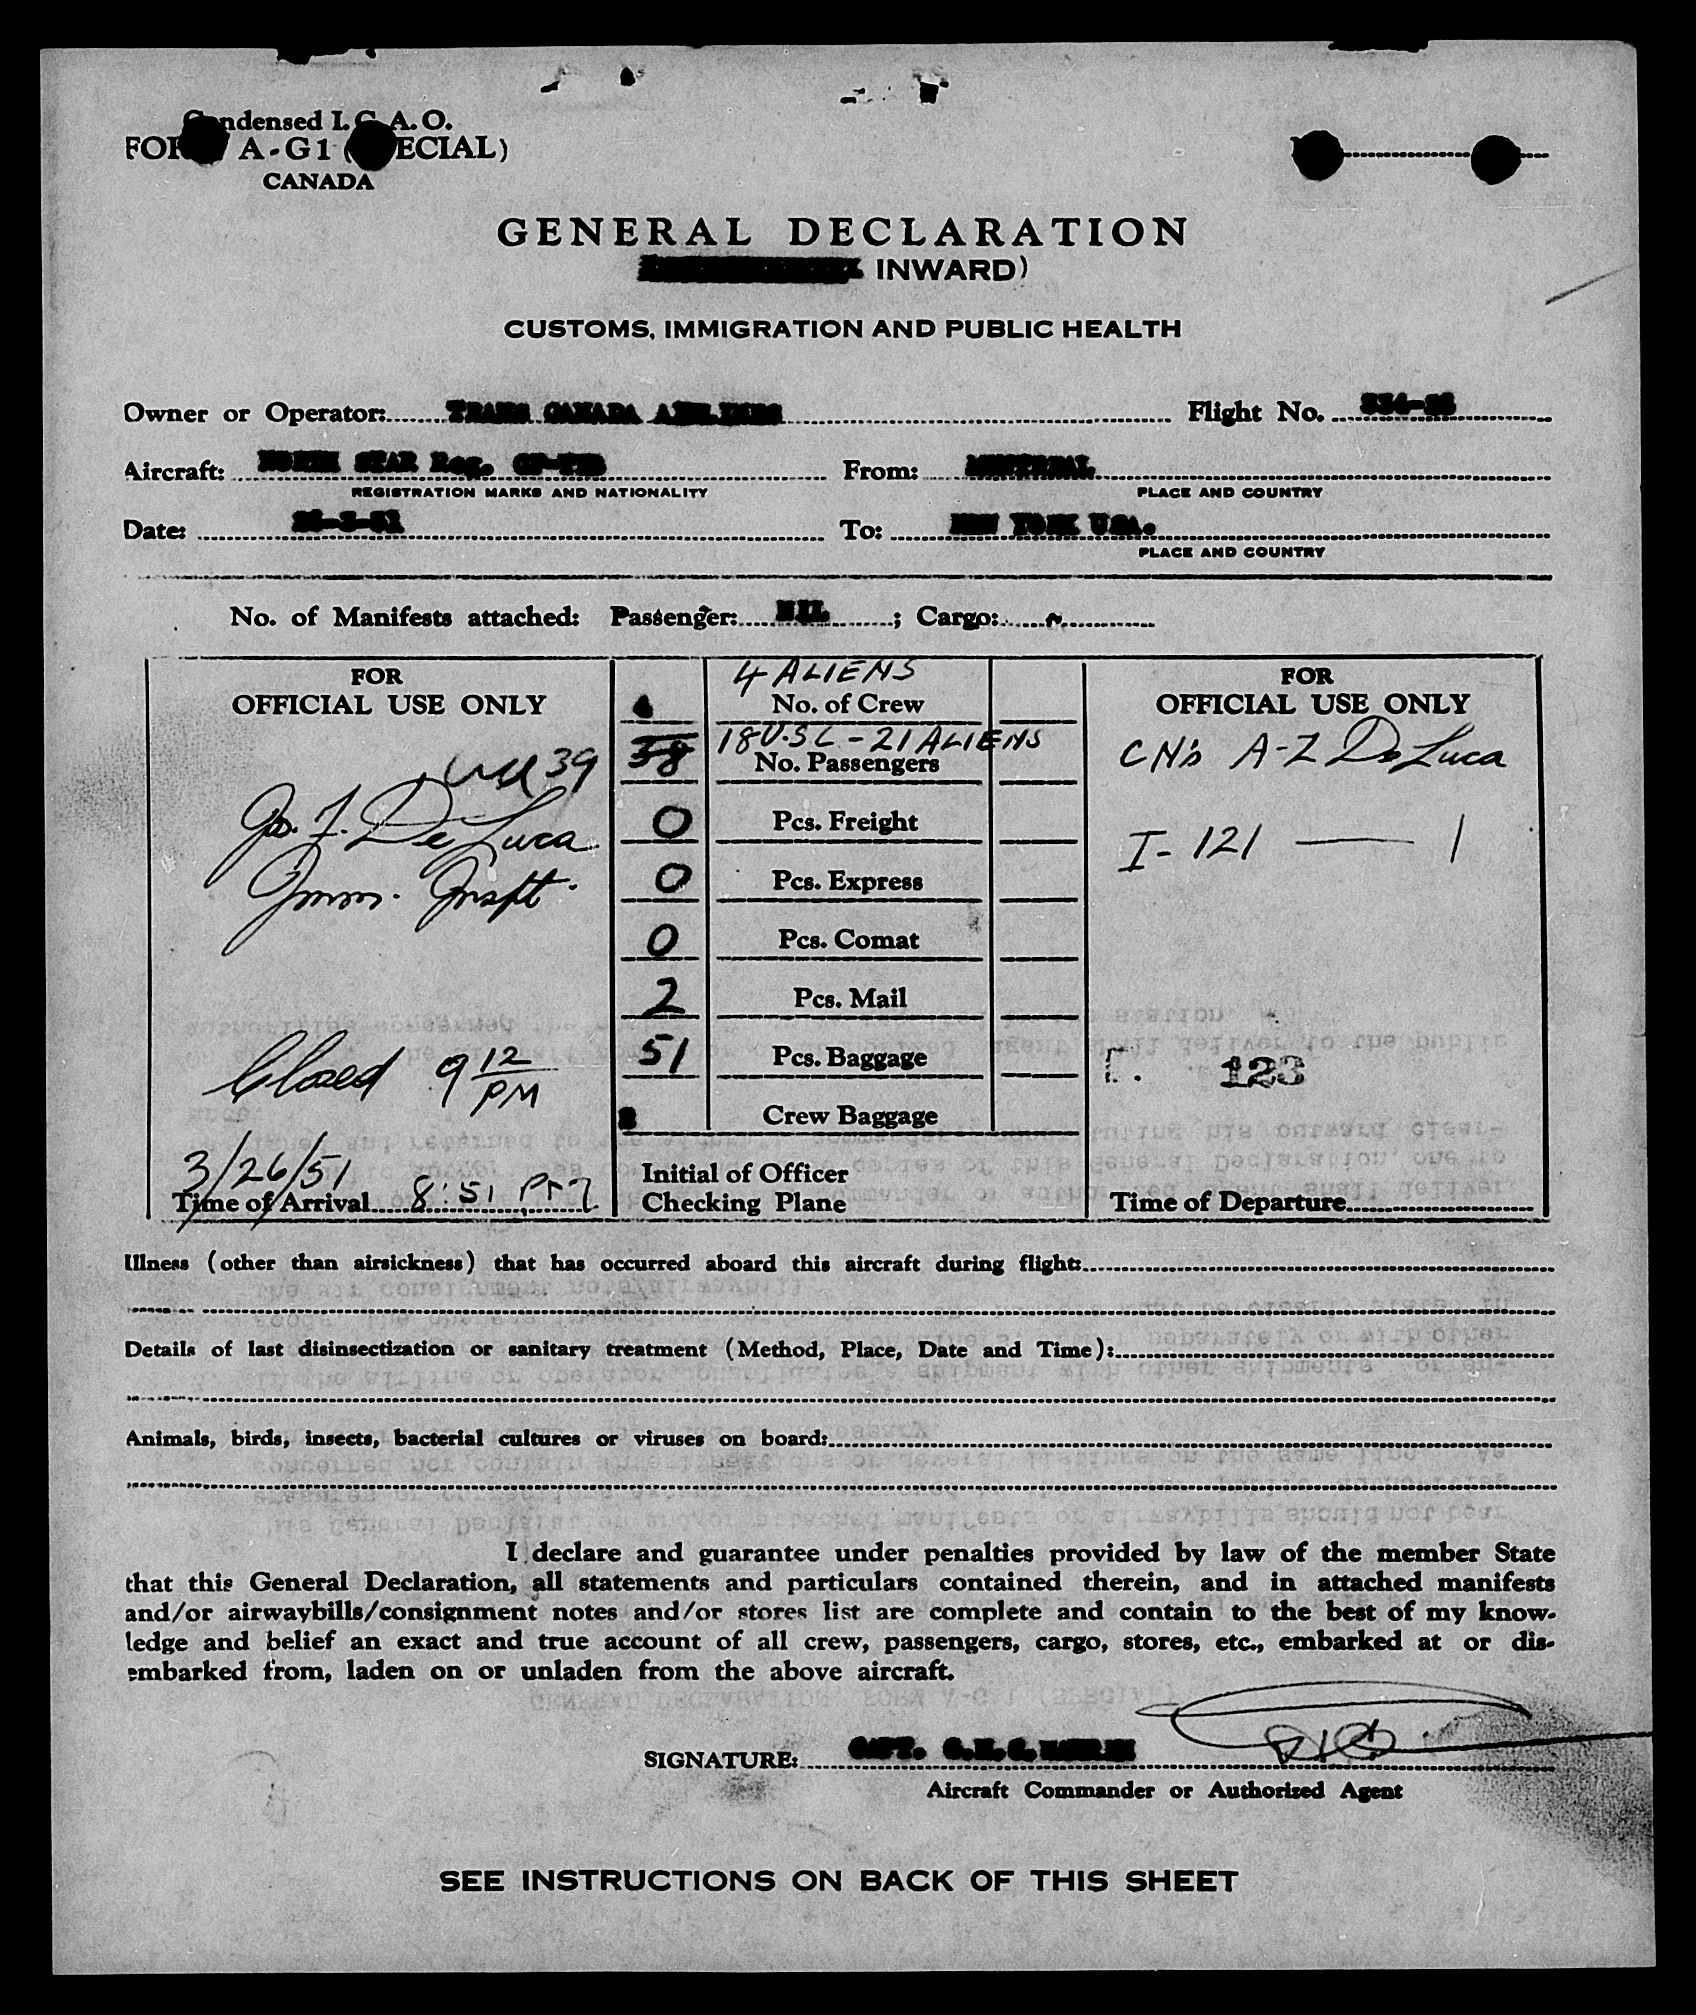 Condensed I.C.A.O.
FORM A-G1 (SPECIAL)
CANADA
GENERAL DECLARATION
INWARD)
CUSTOMS, IMMIGRATION AND PUBLIC HEALTH
Owner or Operator: TRANS CANADA AIRLINES Flight No.
Aircraft: NORTH STAR Reg. From: MONTREAL
REGISTRATION MARKS AND NATIONALITY PLACE AND COUNTRY
Date: 26-3-51 To: NEW YORK USA.
PLACE AND COUNTRY
No. of Manifests attached: Passenger: NIL ; Cargo:
FOR
OFFICIAL USE ONLY
39
Jos. F. De Luca
Imm. Inspt.
Closed 9 12/PM
3/26/51
Time of Arrival 8:51 PM
4 ALIENS
No. of Crew
38 18 U.S C - 21 ALIENS
No. Passengers
0 Pcs. Freight
0 Pcs. Express
0 Pcs. Comat
2 Pcs. Mail
51 Pcs. Baggage
Crew Baggage
Initial of Officer
Checking Plane
FOR
OFFICIAL USE ONLY
CN's A-Z De Luca
I-121 — 1
123
Time of Departure
Illness (other than airsickness) that has occurred aboard this aircraft during flight:
Details of last disinsectization or sanitary treatment (Method, Place, Date and Time):
Animals, birds, insects, bacterial cultures or viruses on board:
I declare and guarantee under penalties provided by law of the member State
that this General Declaration, all statements and particulars contained therein, and in attached manifests
and/or airwaybills/consignment notes and/or stores list are complete and contain to the best of my know-
ledge and belief an exact and true account of all crew, passengers, cargo, stores, etc., embarked at or dis-
embarked from, laden on or unladen from the above aircraft.
SIGNATURE: CAPT.
Aircraft Commander or Authorized Agent
SEE INSTRUCTIONS ON BACK OF THIS SHEET